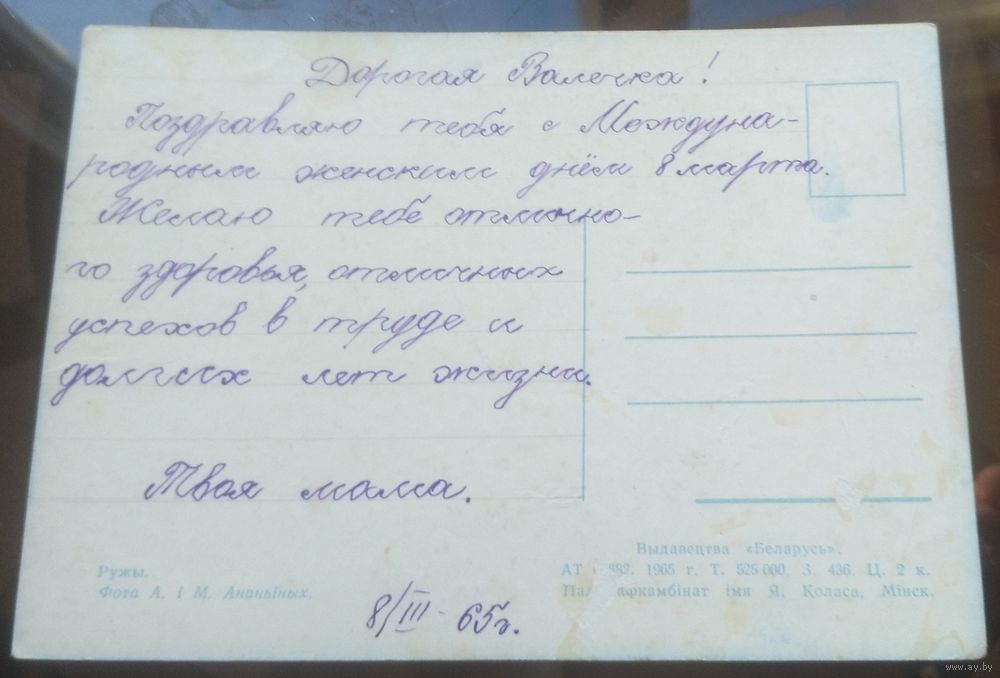 Дорогая Валечка!
Поздравляю тебя с Междуна-
родным женским днём 8 марта.
Желаю тебе отлично-
го здоровья, отличных
успехов в труде и
долгих лет жизни.
Твоя мама.
8/III-65г.
Ружы.
Фота А. і М. Ананьіных.
Выдавецтва «Беларусь».
АТ 882. 1965 г. Т. 525 000. З. 436. Ц. 2 к.
імя Я. Коласа, Мінск.
www.ay.by